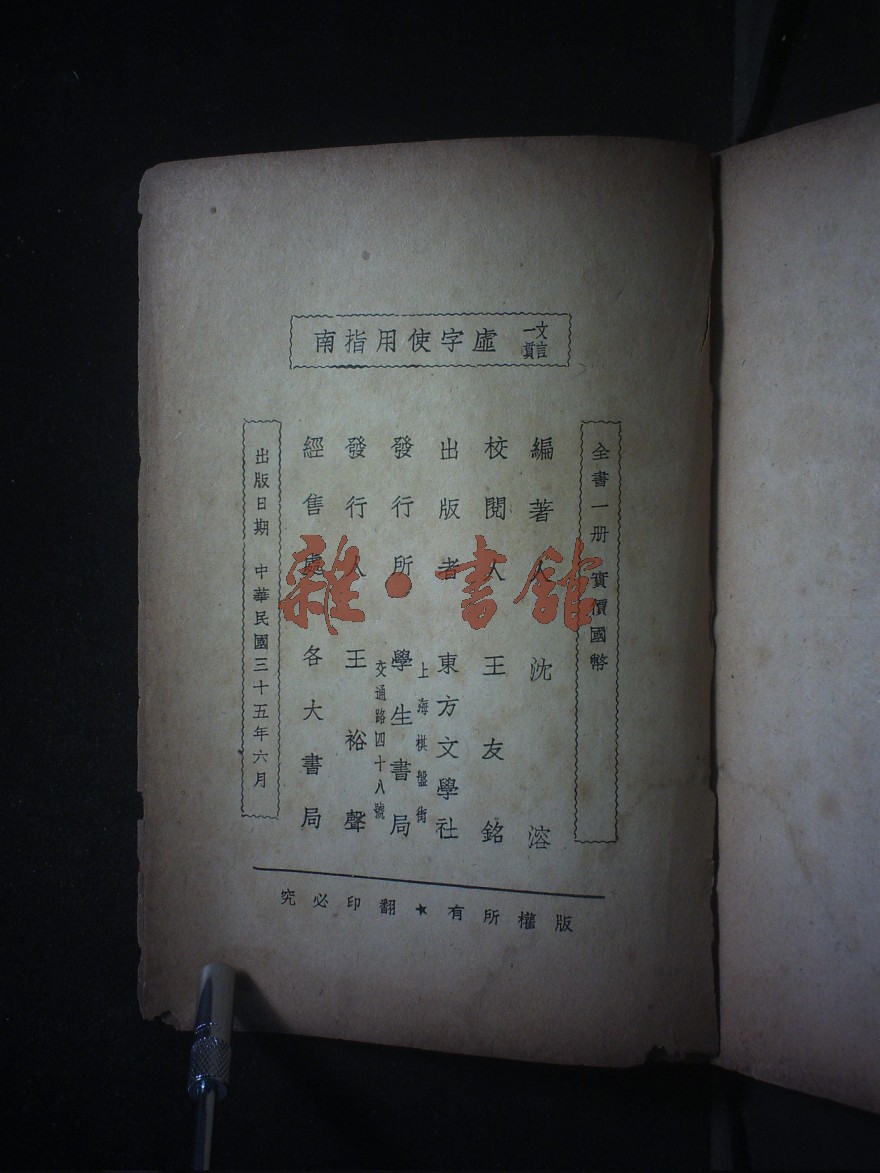 文言一貫 虛字使用指南
全書一册實價國幣
編著人 沈溶
校閱人 王友銘
出版者 東方文學社
上海棋盤街
發行所 學生書局
交通路四十八號
發行人 王裕聲
經售處 各大書局
出版日期 中華民國三十五年六月
版權所有★翻印必究
雜·書館